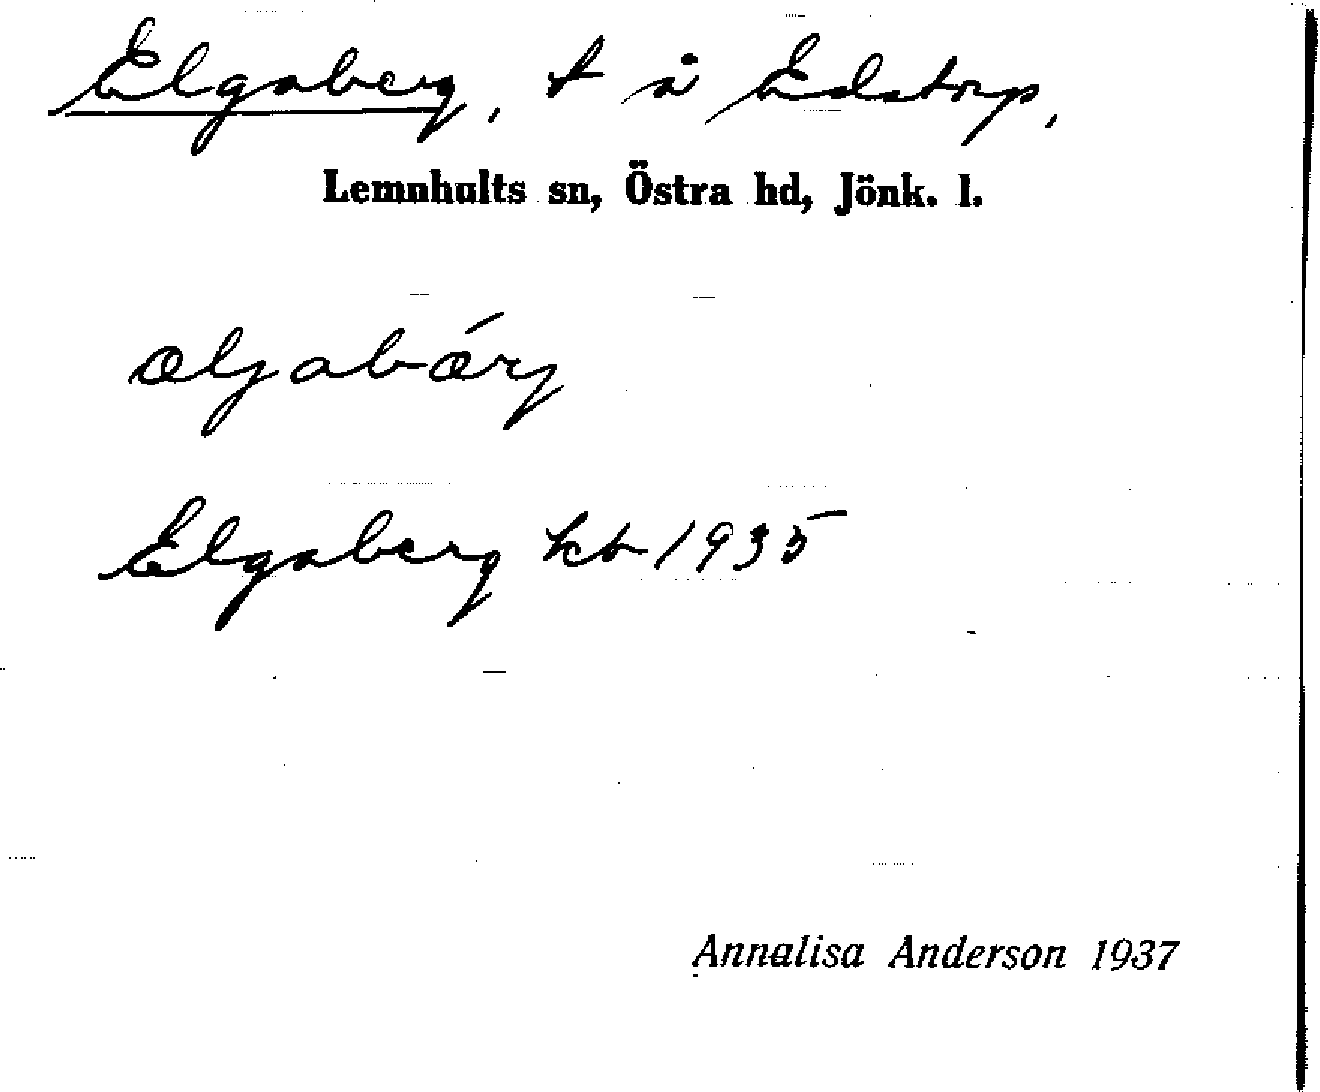 Elgaberg, t å Edstorp,
Lemnhults sn, Östra hd, Jönk. l.
æljabǽrj
Elgaberg kb 1935
Annalisa Anderson 1937